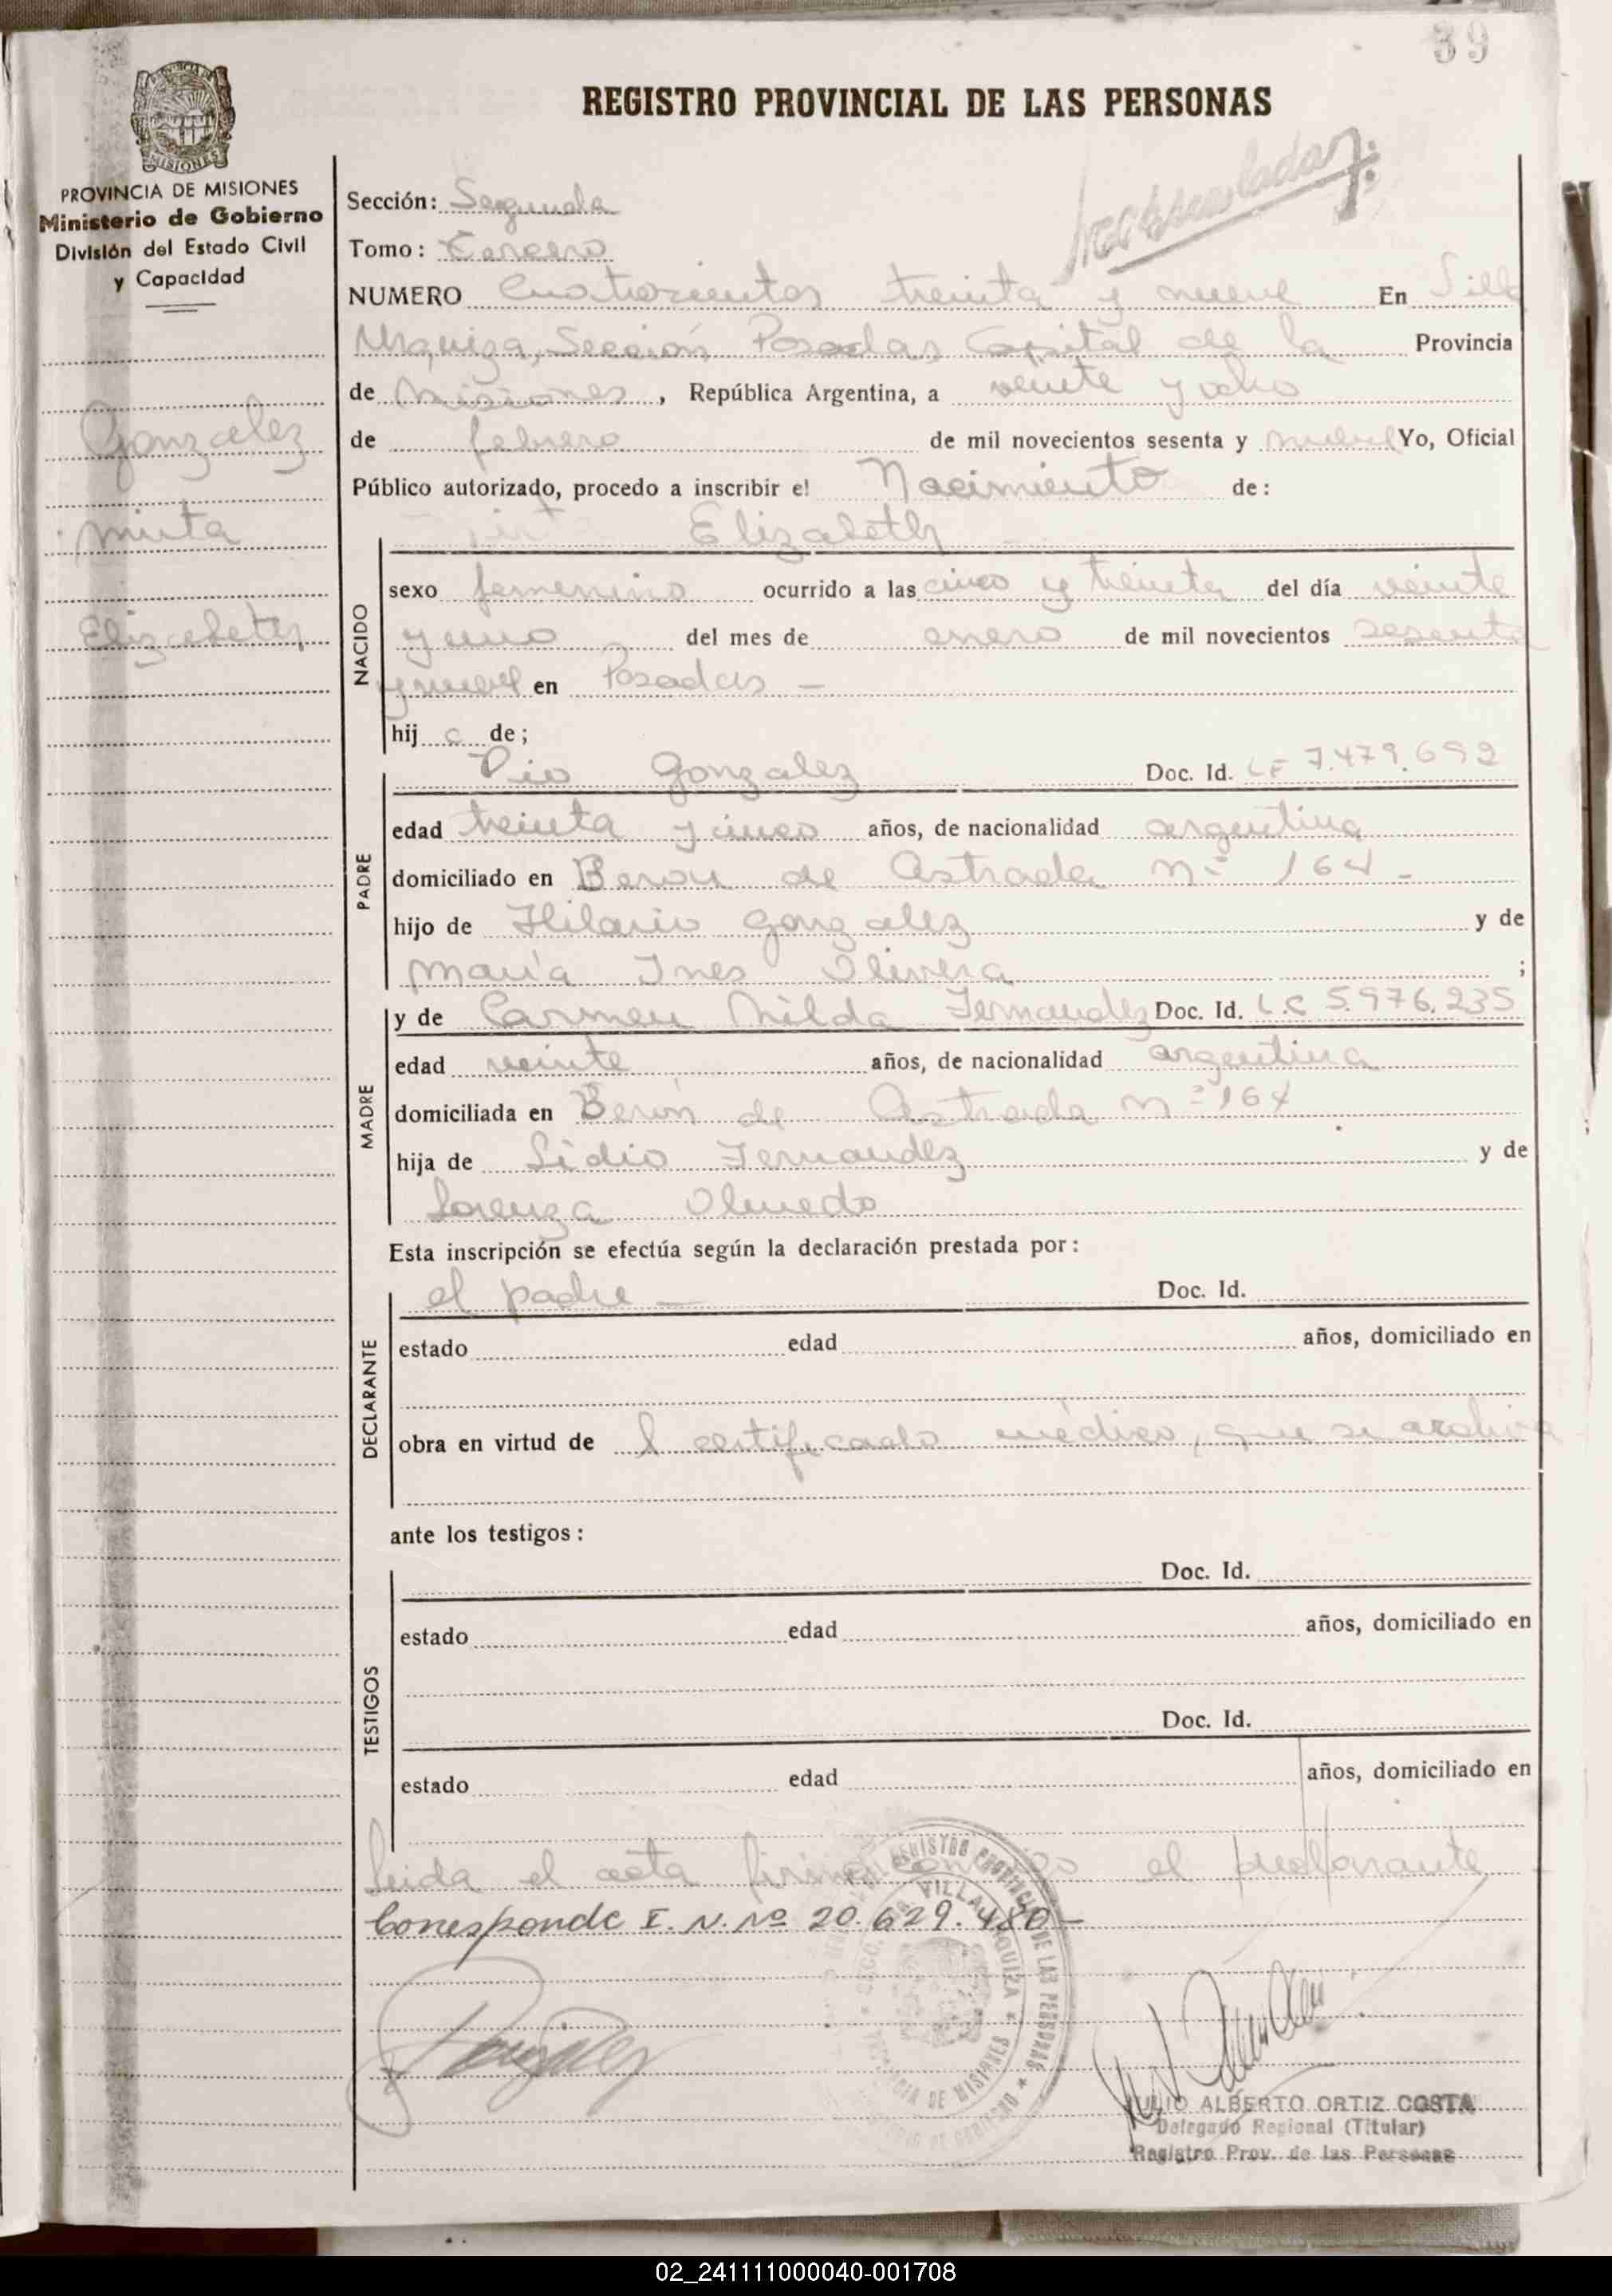 39
REGISTRO PROVINCIAL DE LAS PERSONAS
MISIONES
PROVINCIA DE MISIONES
Ministerio de Gobierno
División del Estado Civil
y Capacidad
Gonzalez
mirta
Elizabeth
Sección: Segunda
Tomo: Tercero
NUMERO Cuatrocientos treinta y nueve En Villa
Urquiza, Sección Posadas Capital de la Provincia
de Misiones, República Argentina, a veinte y ocho
de febrero de mil novecientos sesenta y nueve Yo, Oficial
Público autorizado, procedo a inscribir el Nacimiento de:
Elizabeth
NACIDO
sexo femenino ocurrido a las cinco y treinta del día veinte
y uno del mes de enero de mil novecientos sesenta
y nueve en Posadas –
hij a de;
PADRE
Pio Gonzalez Doc. Id. LE 7.479.692
edad treinta y cinco años, de nacionalidad argentina
domiciliado en Beron de Astrada nº 164 –
hijo de Hilario Gonzalez y de
María Ines Olivera ;
MADRE
y de Carmen Nilda Fernandez Doc. Id. L.C 5.976.235
edad veinte años, de nacionalidad argentina
domiciliada en Berón de Astrada nº 164
hija de Lidio Fernandez y de
Lorenza Olmedo
Esta inscripción se efectúa según la declaración prestada por:
DECLARANTE
el padre – Doc. Id.
estado edad años, domiciliado en
obra en virtud de l certificado médico, que se archiva
ante los testigos:
TESTIGOS
Doc. Id.
estado edad años, domiciliado en
Doc. Id.
estado edad años, domiciliado en
Leida el acta firma conmigo el declarante
Corresponde I. N. Nº 20.629.480 –
REGISTRO PROVINCIAL DE LAS PERSONAS
VILLA URQUIZA
PROVINCIA DE MISIONES
Gonzalez
JULIO ALBERTO ORTIZ COSTA
Delegado Regional (Titular)
Registro Prov. de las Personas
02_241111000040-001708